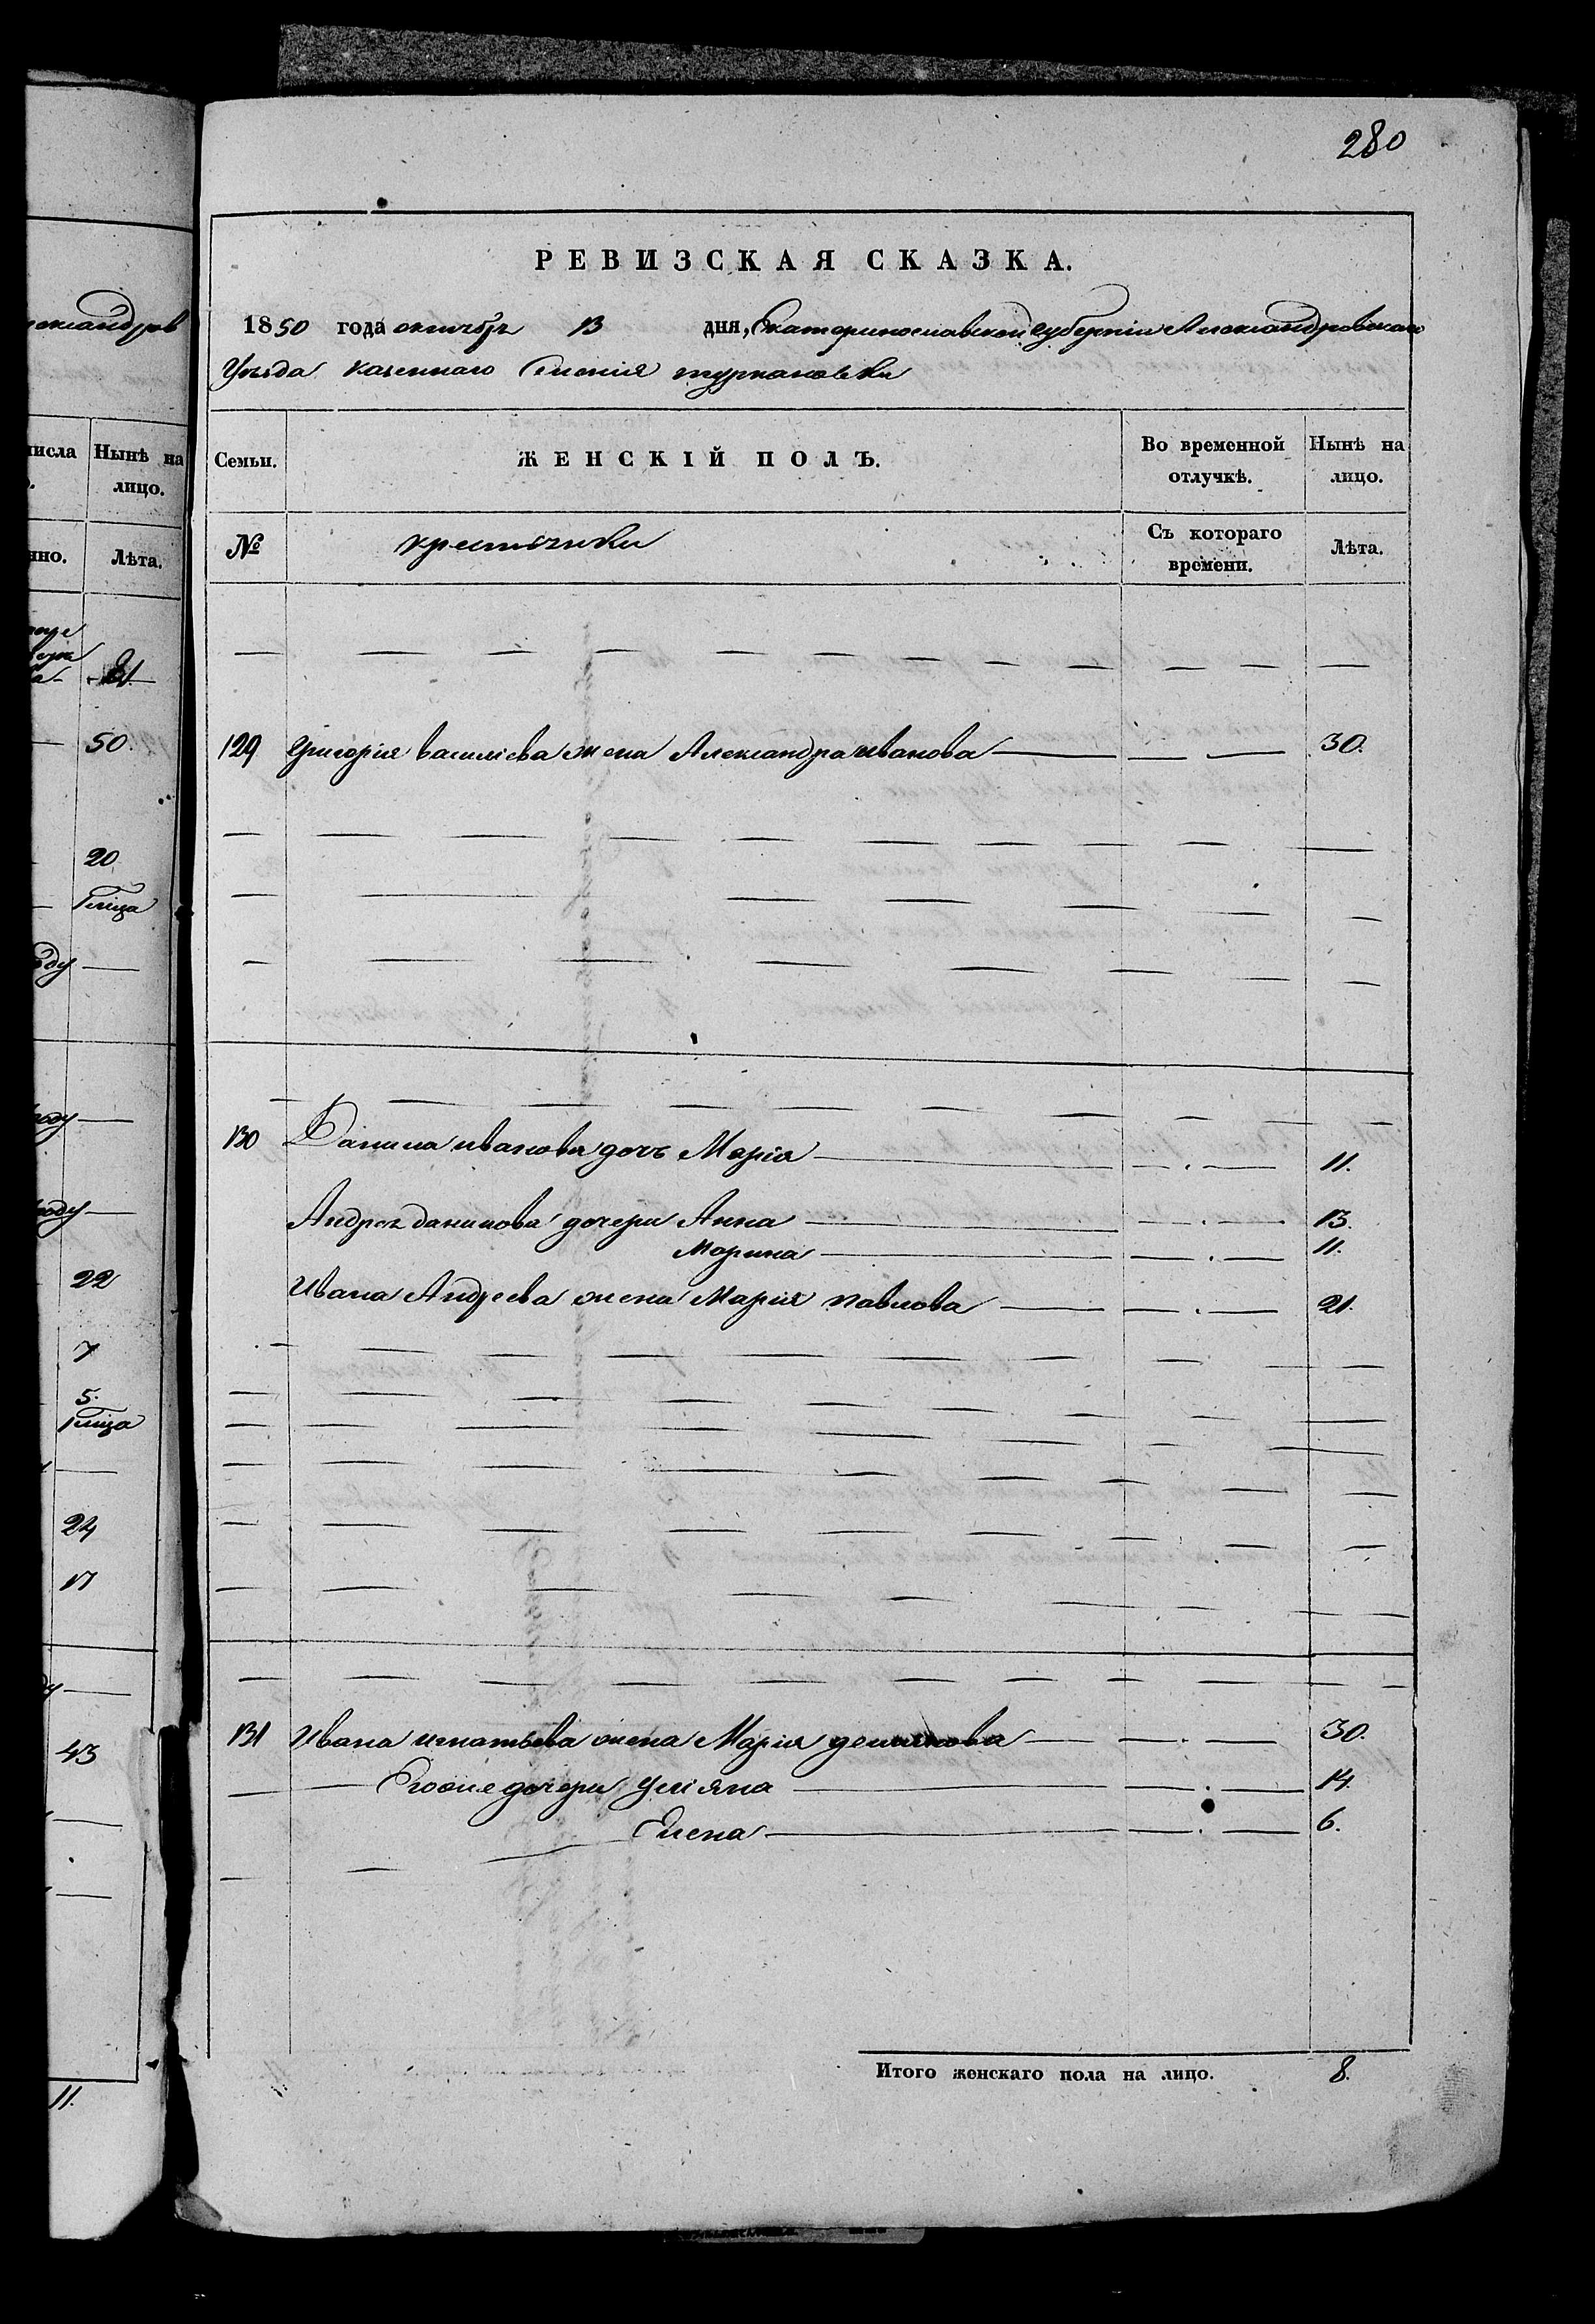 280
РЕВИЗСКАЯ СКАЗКА.
1850 года октября 13 дня, Екатеринославской губернии Александровскаго
Уѣзда казеннаго Селения
Семьи. ЖЕНСКІЙ ПОЛЪ. Во временной отлучкѣ. Нынѣ на лицо.
№ крестьянки Съ котораго времени. Лѣта.
129 Григорія василіева жена Александра иванова 30.
130 Данила иванова дочъ Марія 11.
Андрея данилова дочери Анна 13.
Марина 11.
Ивана Андреева жена Марія павлова 21.
131 Ивана игнатьева жена Марія 30.
дочери Уліяна 14.
Елена 6.
Итого женскаго пола на лицо. 8.
лександров
числа Нынѣ на лицо.
нно. Лѣта.
21
50.
20
году
году
году
22
7
5.
24
17
43
11.